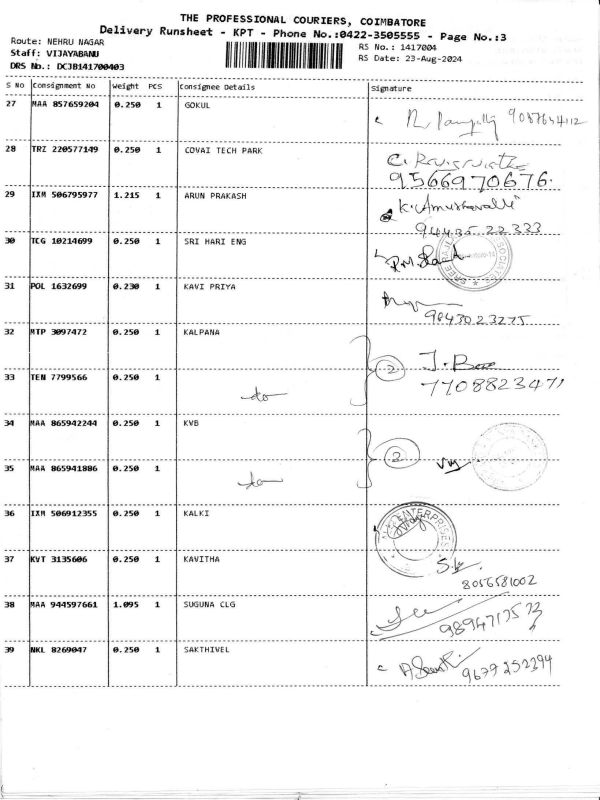 THE PROFESSIONAL COURIERS, COIMBATORE
Delivery Runsheet - KPT - Phone No.:0422-3505555 - Page No.:3
Route: NEHRU NAGAR
Staff: VIJAYABANU
DRS No.: DCJB141700403
RS No.: 1417004
RS Date: 23-Aug-2024
S NO Consignment No Weight PCS Consignee Details Signature
27 MAA 857659204 0.250 1 GOKUL
28 TRZ 220577149 0.250 1 COVAI TECH PARK
9566970676.
29 IXM 506795977 1.215 1 ARUN PRAKASH
94435 22333
30 TCG 10214699 0.250 1 SRI HARI ENG
31 POL 1632699 0.230 1 KAVI PRIYA
9843023275
32 MTP 3097472 0.250 1 KALPANA
33 TEN 7799566 0.250 1 do 2
7708823471
34 MAA 865942244 0.250 1 KVB
35 MAA 865941886 0.250 1 do 2
36 IXM 506912355 0.250 1 KALKI
ENTERPRISES
37 KVT 3135606 0.250 1 KAVITHA
8056581002
38 MAA 944597661 1.095 1 SUGUNA CLG
39 NKL 8269047 0.250 1 SAKTHIVEL
9679252394